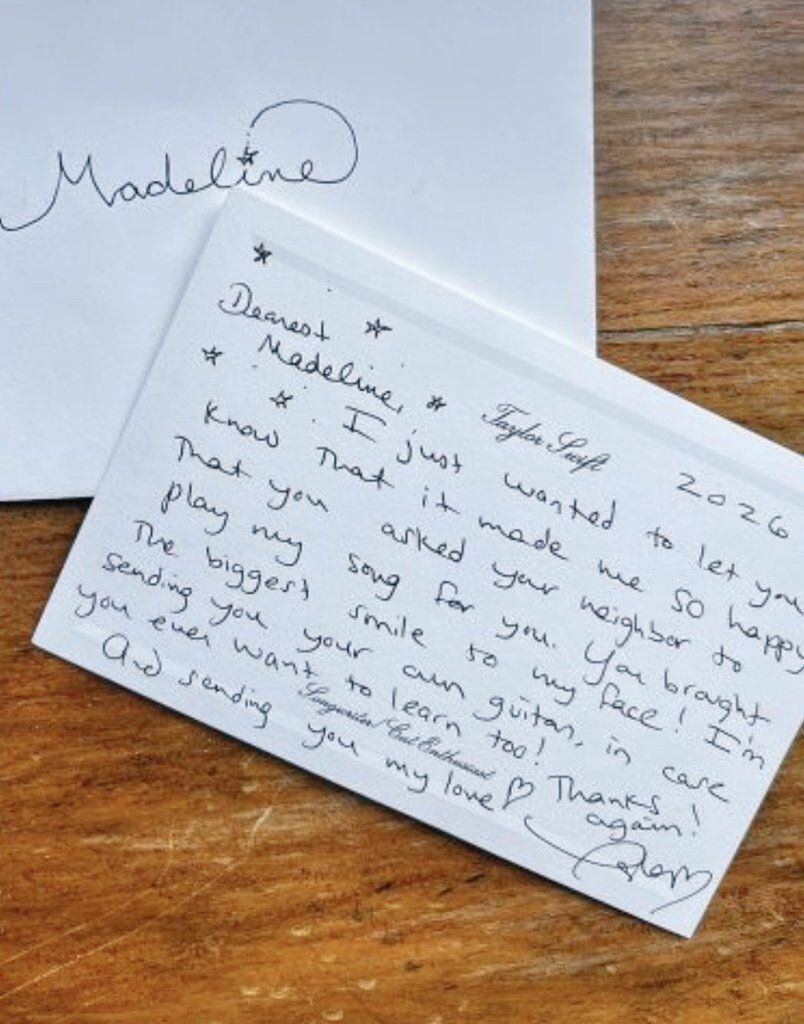 Madeline
Taylor Swift
2026
Dearest
Madeline,
I just wanted to let you
know that it made me so happy
that you asked your neighbor to
play my song for you. You brought
the biggest smile to my face! I'm
sending you your own guitar, in case
you ever want to learn too! Thanks
again!
And sending you my love
Songwriter / Cat Enthusiast
Taylor